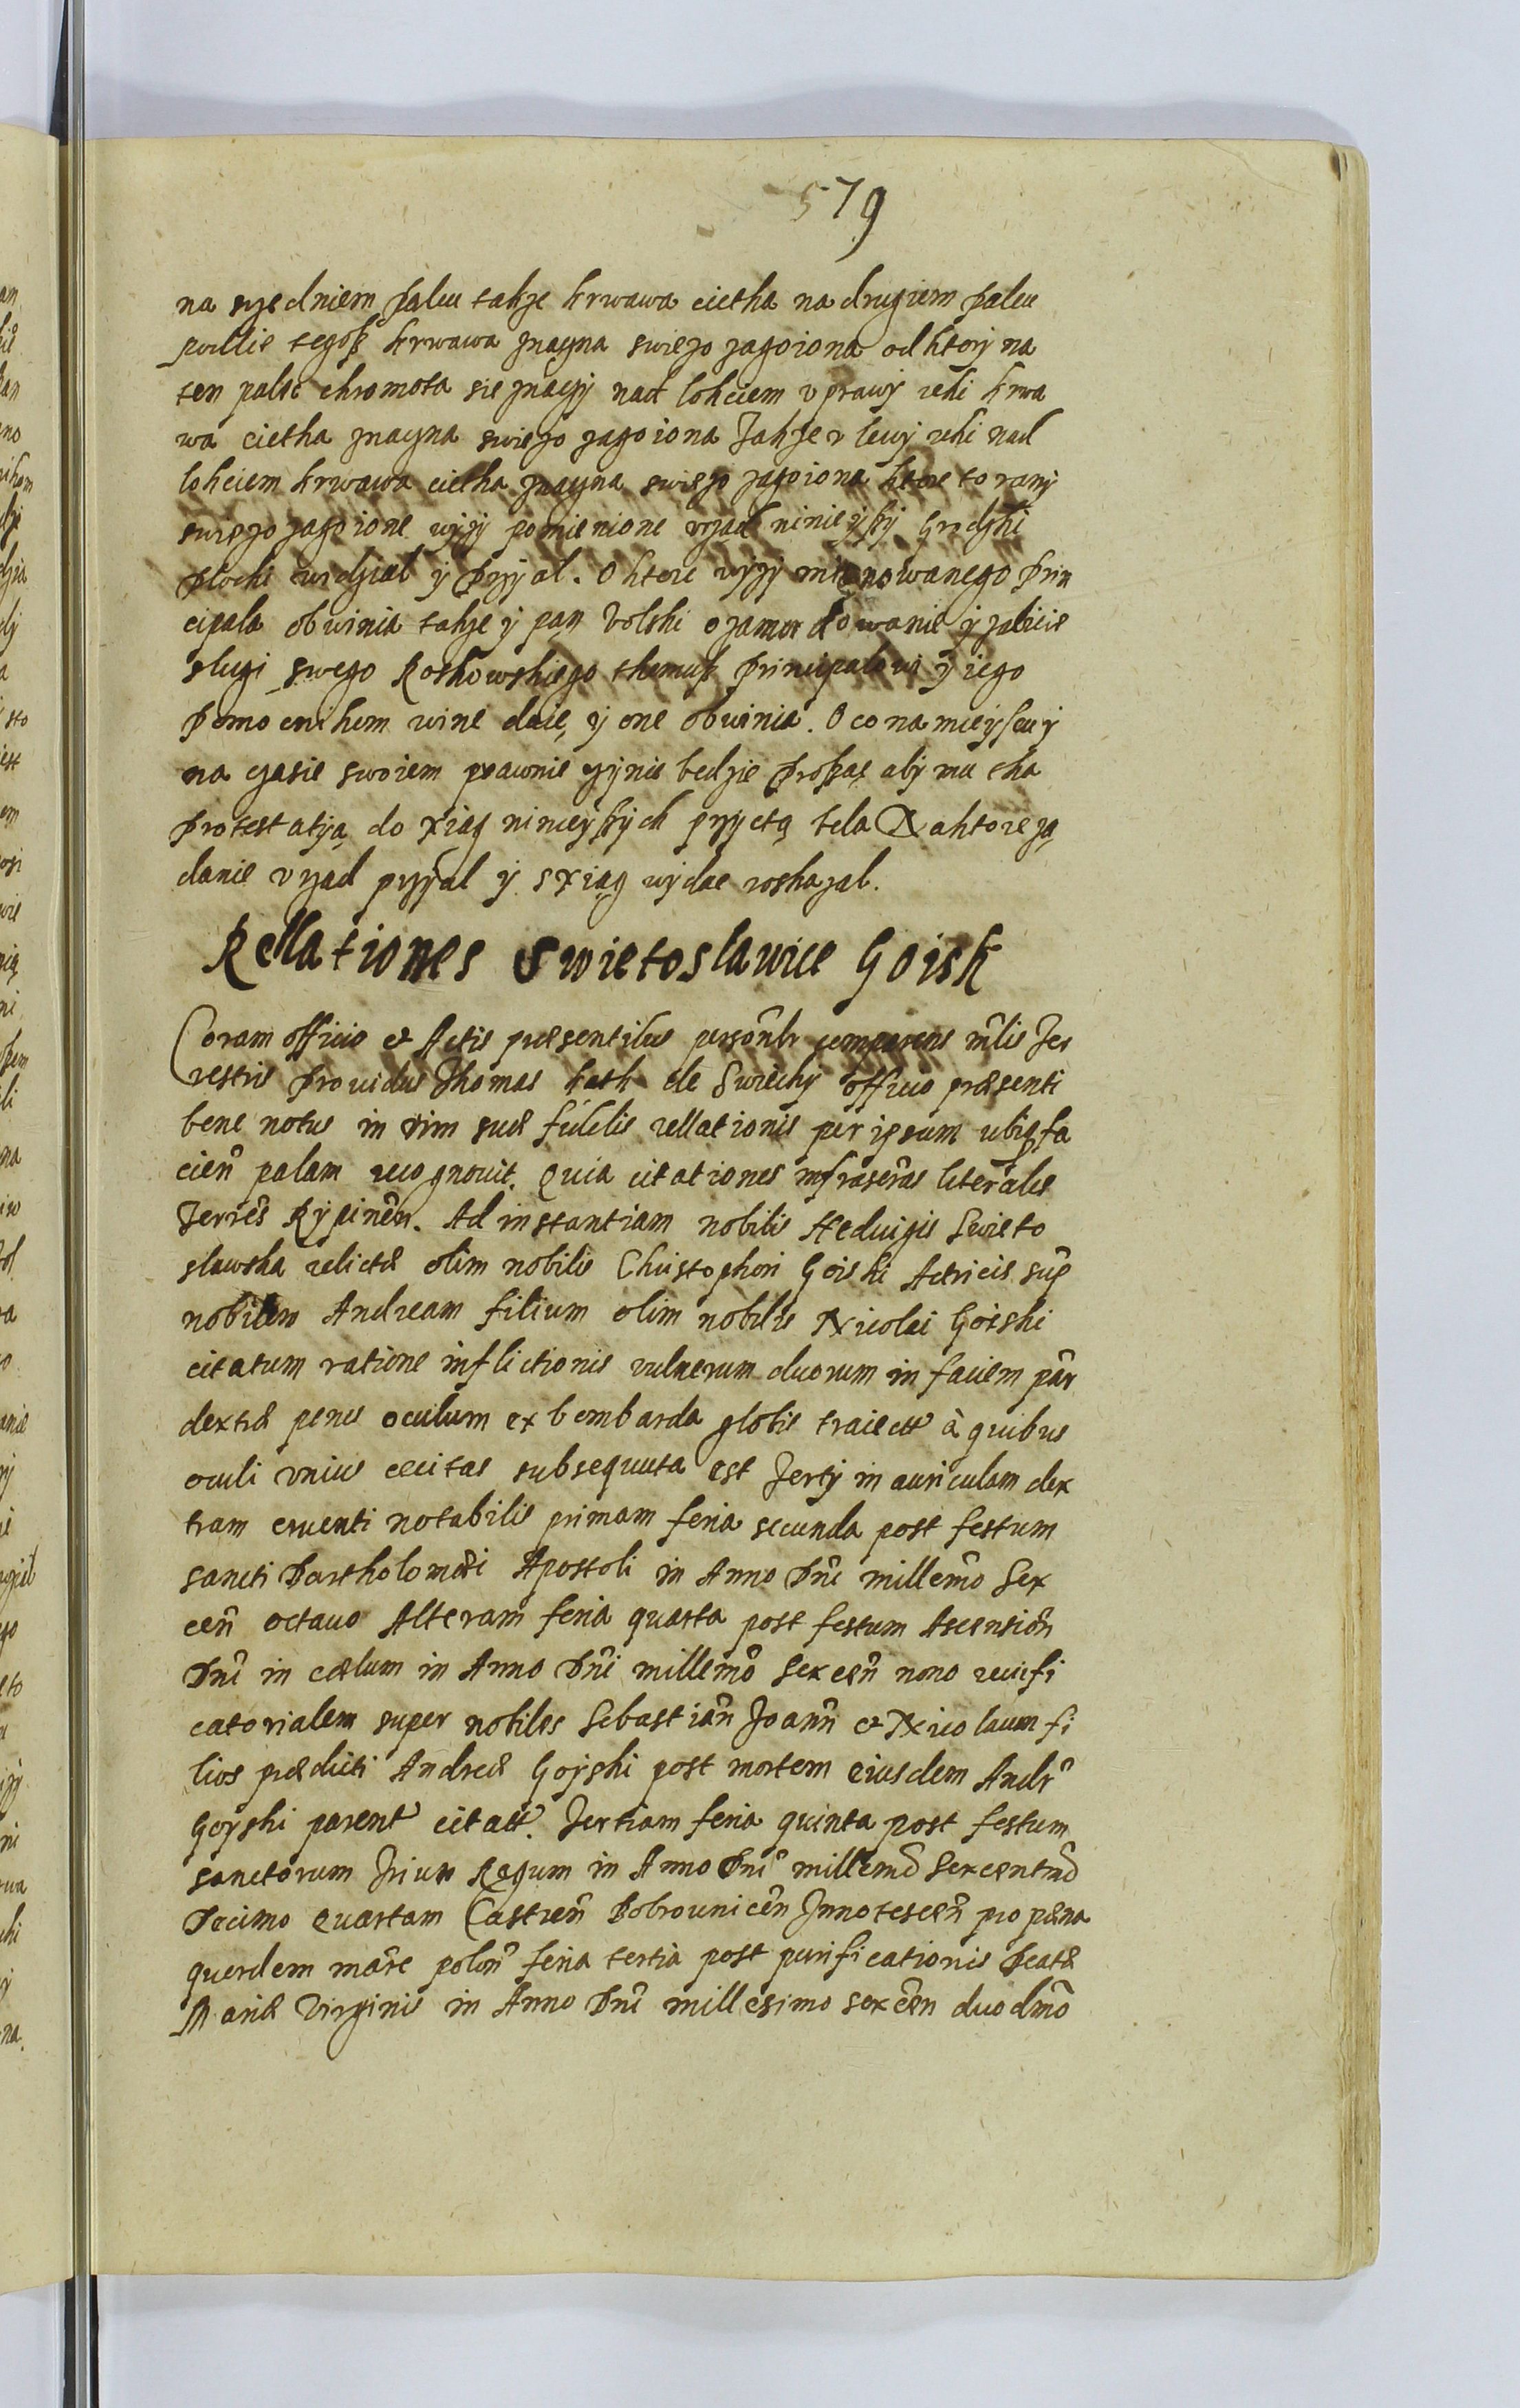 579
na szedniem palcu takze krwawa cietha na drugiem palcu
podlie tegosz krwawa znaczna swiezo zagoiona od ktorÿ na
ten palec chromota sie znaczÿ nad lokciem v prawÿ reki krwa
wa cietha znaczna swiezo zagoiona Takze v lewÿ reki nad
lokciem krwawa cietha znaczna swiezo zagoiona ktore to ranÿ
swiezo zagoione wÿzÿ pomienione vrzad ninieÿszÿ Grodzki
Plocki widzial ÿ przÿial. O ktore wÿzÿ mianowanego prin
cipala obwinia takze ÿ pan Volski o zamordowanie ÿ zabicie
slugi swego Roskowskiego themusz principalowi ÿ iego
pomocnikom wine daie, ÿ one obwinia. O co na mieÿscu ÿ
na czasie swoiem prawnie czÿnic bedzie proszac abÿ mu tha
protestatÿą do xiąg ninieÿszÿch przÿeta bela Na ktore zą
danie vrzad przÿial ÿ s xiąg wÿdac roskazal.
Rellationes Swietoslawice Goisk
Coram officio et Actis præsentibus personlr comparens mlis Ter
restris Prouidus Thomas kosk de Swiechÿ officio præsenti
bene notus in vim suæ fidelis rellationis per ipsum ubiq fa
cien palam recognouit. Quia citationes infrascras literales
Terres Rÿpinen. Ad instantiam nobilis Heduigis Swieto
slawska relictæ olim nobilis Christophori Goiski Actricis sup
nobilem Andream filium olim nobilis Nicolai Goiski
citatum ratione inflictionis vulnerum duorum in faciem par
dextræ penes oculum ex bombarda globis traiect à quibus
oculi vnius cecitas subsequuta est Tertÿ in auriculam dex
tram cruenti notabilis primam feria secunda post festum
sancti Bartholomæi Apostoli in Anno Dni millemo Sex
cen octauo Alteram feria quarta post festum Ascension
Dni in cælum in Anno Dni millemo Sexcen nono reuifi
catorialem super nobiles Sebastian Joann et Nicolaum fi
lios prædicti Andreæ Goÿski post mortem eiusdem Andr
Goÿski parent citatt. Tertiam feria quinta post festum
sanctorum Trium Regum in Anno Dni millemo Sexcentmo
Decimo Quartam Castren Bobrounicen Innotescen pro pæna
querdem marc polon feria tertia post purificationis Beatæ
Mariæ Virginis in Anno Dni millesimo sexcen duodmo